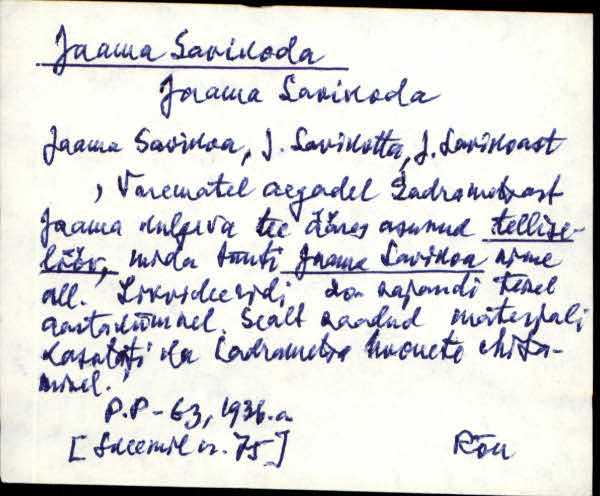 Jaama Savikoda
Jaama Savikoda
Jaama Savikoa, J. Savikotta, J. Savikoast
, Varematel aegadel Kadrametsast
Jaama kulgeva tee ääres asunud tellise-
löör, mida tunti Jaama Savikoa nime
all. Likvideeridi XX sajandi teisel
aastakümnel. Sealt saadud materjali
kasutati ka Kadrametsa hoonete ehita-
misel.
P.P-63, 1936.a
[ nr. 75]
Rõu